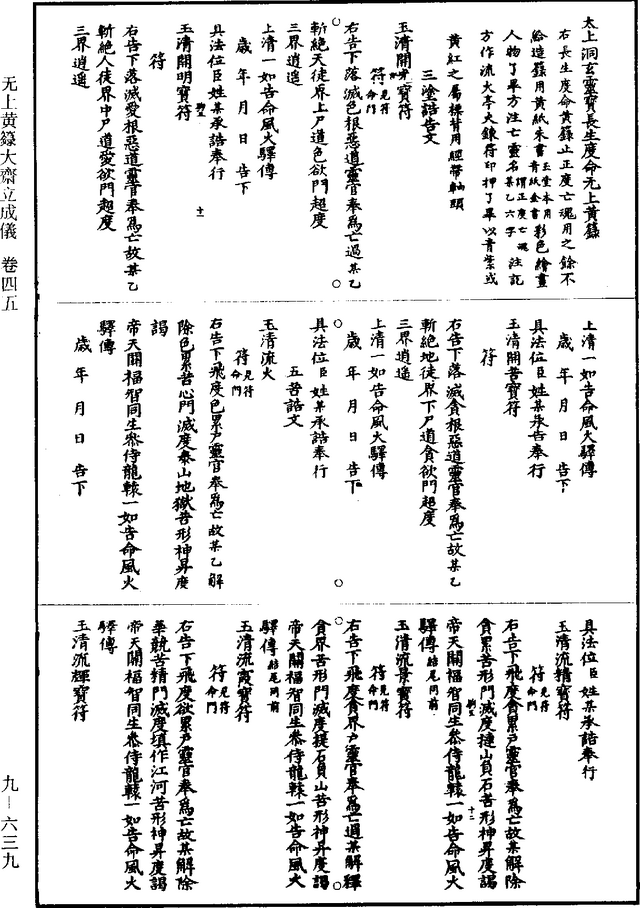 太上洞玄靈寶長生度命无上黃籙
右長生度命黃籙止正度亡魂用之餘不
給造籙用黃紙朱書玉堂本用青紙金書彩色繪畫
人物了畢方注亡靈名某乙六字謂正度亡魂注記
方作流火亭火鍊符印押了畢以青紫或
黃紅之屬操背用經帶軸頭
三塗誥告文
玉清開光寶符
符見符命門
右告下落滅色根惡道靈官奉為亡過某乙
斬絕天徒界上尸道色欲門超度
三界逍遥
上清一如告命風火驛傳
歲年月日告下
具法位臣姓某承誥奉行
玉清開明寶符
符
右告下落滅愛根惡道靈官奉為亡故某乙
斬絕人徒界中尸道愛欲門超度
三界逍遥
上清一如告命風火驛傳
歲年月日告下
具法位臣姓某承告奉行
玉清開苦寶符
符
右告下落滅貪根惡道靈官奉為亡故某乙
斬絕地徒界下尸道貪欲門超度
三界逍遥
上清一如告命風火驛傳
歲年月日告下
具法位臣姓某承誥奉行
五苦誥文
玉清流火
符見符命門
右告下飛度色累尸靈官奉為亡故某乙解
除色累苦心門滅度泰山地獄苦形神昇度
謁
帝天開福智同生叅侍龍轅一如告命風火
驛傳
歲年月日告下
具法位臣姓某承誥奉行
玉清流精寶符
符見符命門
右告下飛度愛累尸靈官奉為亡故某解除
貪累苦形門滅度揵山負石苦形神昇度謁
帝天開福智同生叅侍龍轅一如告命風火
驛傳結尾同前
玉清流景寶符
符見符命門
右告下飛度貪界尸靈官奉為亡過某解釋
貪界苦形門滅度提石負山苦形神昇度謁
帝天開福智同生叅侍龍轅一如告命風火
驛傳結尾同前
玉清流霞寶符
符見符命門
右告下飛度欲累尸靈官奉為亡故某解除
華競苦精門滅度填作江河苦形神昇度謁
帝天開福智同生叅侍龍轅一如告命風火
驛傳
玉清流輝寶符
无上黃籙大齋立成儀 卷四五
九—六三九